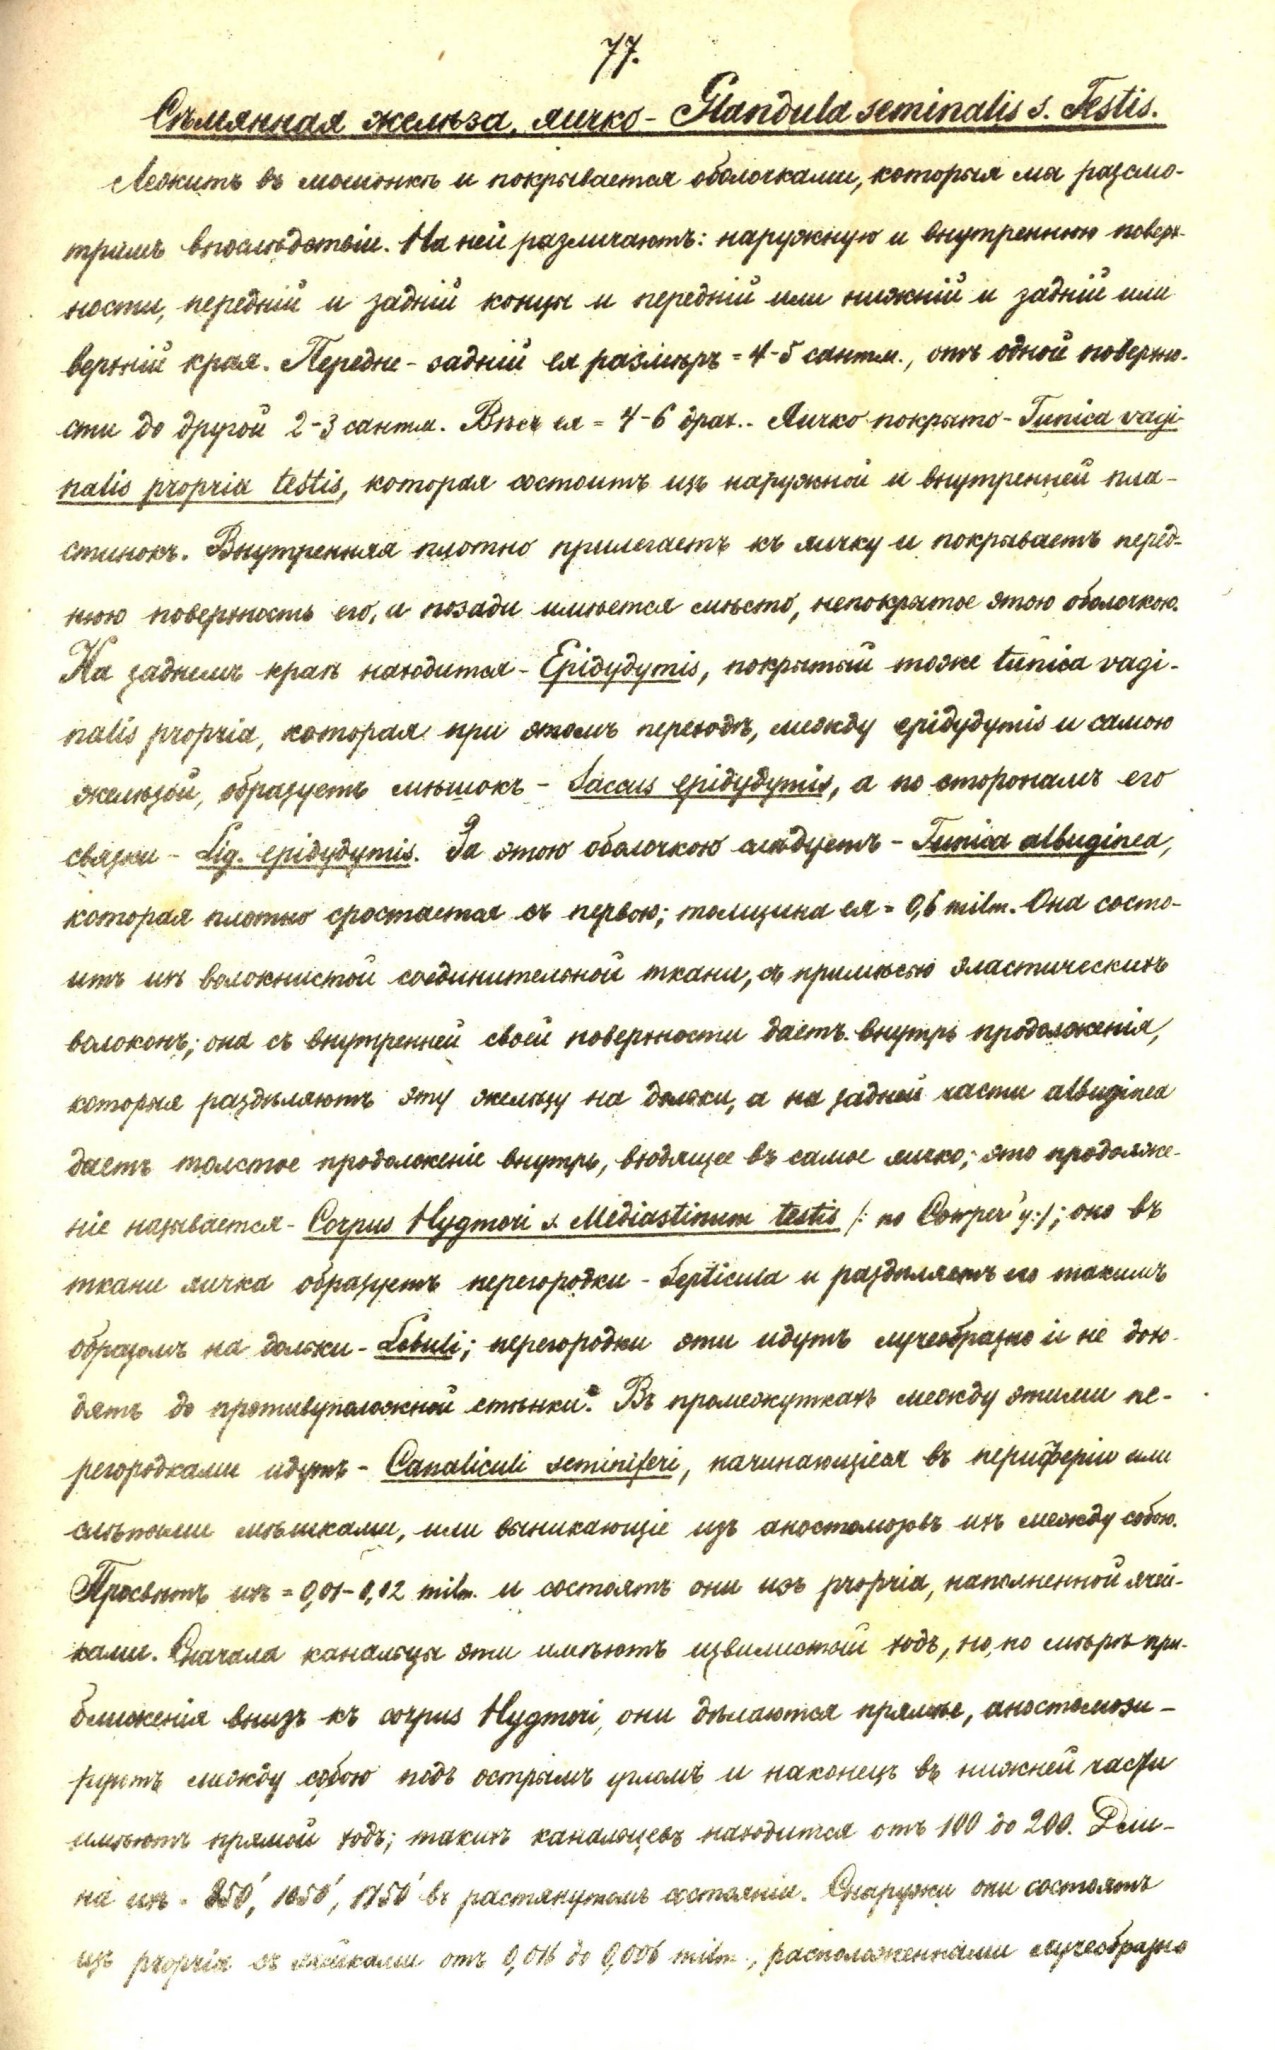 77.
Сѣмянная желѣза, яичко - Glandula seminalis s. Testis.
Лежитъ въ мошонкѣ и покрывается оболочками, которыя мы разсмо-
тримъ впослѣдствіи. На ней различаютъ: наружную и внутреннюю поверх-
ности, передній и задній концы и передній или нижній и задній или
верхній края. Передне-задній ея размѣръ = 4-5 сантм., отъ одной поверхно-
сти до другой 2-3 сантм. Вѣсъ ея = 4-6 драх.. Яичко покрыто - Tunica vagi-
nalis propria testis, которая состоитъ изъ наружной и внутренней пла-
стинокъ. Внутренняя плотно прилегаетъ къ яичку и покрываетъ перед-
нюю поверхность его, и позади имѣется мѣсто, непокрытое этою оболочкою.
На заднемъ краѣ находится - Epidydymis, покрытый тоже tunica vagi-
nalis propria, которая при этомъ переходѣ, между epidydymis и самою
желѣзой, образуетъ мѣшокъ - Saccus epidydymis, а по сторонамъ его
связки - Lig. epidydymis. За этою оболочкою слѣдуетъ - Tunica albuginea,
которая плотно сростается съ первою; толщина ея = 0,6 milm. Она состо-
итъ изъ волокнистой соединительной ткани, съ примѣсью эластическихъ
волоконъ; она съ внутренней своей поверхности даетъ внутрь продолженія,
которыя раздѣляютъ эту желѣзу на дольки, а на задней части albuginea
даетъ толстое продолженіе внутрь, входящее въ самое яичко; это продолже-
ніе называется - Corpus Hygmori s. Mediastinum testis /: по Cowper'у :/; оно въ
ткани яичка образуетъ перегородки - Septicula и раздѣляетъ его такимъ
образомъ на дольки - Lobuli; перегородки эти идутъ лучеобразно и не дохо-
дятъ до противуположной стѣнки. Въ промежуткахъ между этими пе-
регородками идутъ - Canaliculi seminiferi, начинающіеся въ периферіи или
слѣпыми мѣшками, или выникающіе изъ аностомозовъ ихъ между собою.
Просвѣтъ ихъ = 0,01-0,02 milm. и состоятъ они изъ propria, наполненной ячей-
ками. Сначала канальцы эти имѣютъ извилистый ходъ, но, по мѣрѣ при-
ближенія внизъ къ corpus Hygmori, они дѣлаются прямѣе, аностомози-
руютъ между собою подъ острымъ угломъ и наконецъ въ нижней части
имѣютъ прямой ходъ; такихъ канальцевъ находится отъ 100 до 200. Дли-
на ихъ = 850', 1050', 1750' въ растянутомъ состояніи. Снаружи они состоятъ
изъ propria съ ячейками отъ 0,016 до 0,006 milm., расположенными лучеобразно